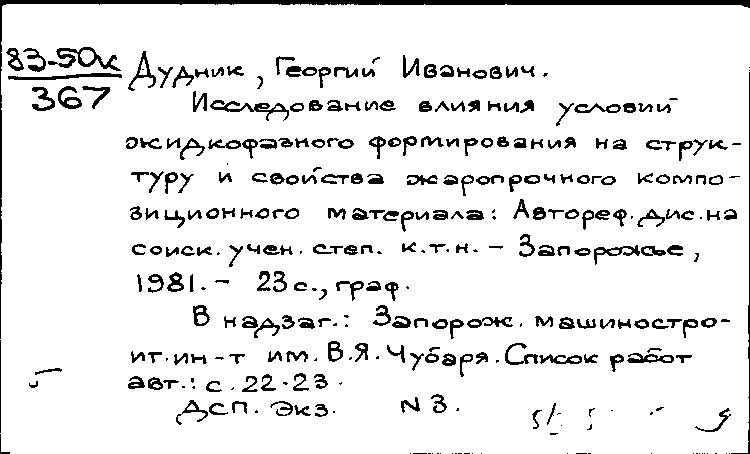 83-50к
367
Дудник, Георгий Иванович.
Исследование влияния условий
жидкофазного формирования на струк-
туру и свойства жаропрочного компо-
зиционного материала: Автореф. дис. на
соиск. учен. степ. к.т.н. - Запорожье,
1981. - 23 с., граф.
В надзаг.: Запорож. машиностро-
ит. ин-т им. В.Я. Чубаря. Список работ
авт.: с. 22-23.
ДСП. Экз. N 3.